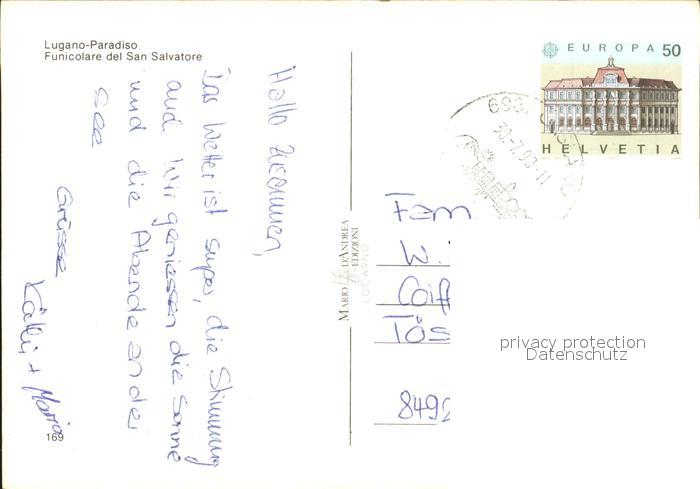 Lugano-Paradiso
Funicolare del San Salvatore
Hallo zusammen,
Das Wetter ist super, die Stimmung
auch. Wir geniessen die Sonne
und die Abende an der
See
Grüsse
+ Maria
169
MARIO D'ANDREA
EDIZIONI
LOCARNO
EUROPA 50
HELVETIA
30-7.90-11
Fam
Wi
Coiff
Tös
8492
privacy protection
Datenschutz